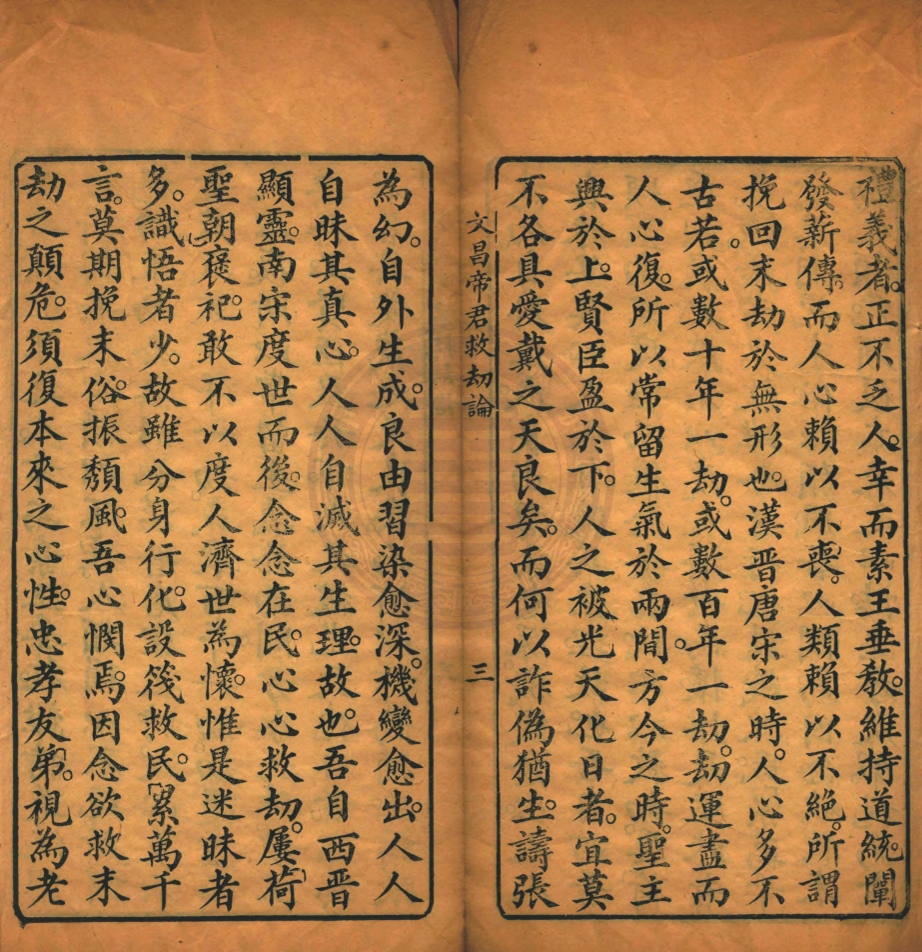 禮義者。正不乏人。幸而素王垂教。維持道統。闡
發薪傳。而人心賴以不喪。人類賴以不絕。所謂
挽回末劫於無形也。漢晉唐宋之時。人心多不
古若。或數十年一劫。或數百年一劫。劫運盡而
人心復。所以常留生氣於兩間。方今之時。聖主
興於上。賢臣盈於下。人之被光天化日者。宜莫
不各具愛戴之天良矣。而何以詐偽猶生。譸張
文昌帝君救劫論
三
為幻。自外生成。良由習染愈深。機變愈出。人人
自昧其真心。人人自滅其生理。故也。吾自西晉
顯靈。南宋度世而後。念念在民。心心救劫。屢荷
聖朝褒祀。敢不以度人濟世為懷。惟是迷昧者
多。識悟者少。故雖分身行化。設筏救民。累萬千
言。莫期挽末俗。振頽風。吾心憫焉。因念欲救末
劫之顛危。須復本來之心性。忠孝友弟。視為老